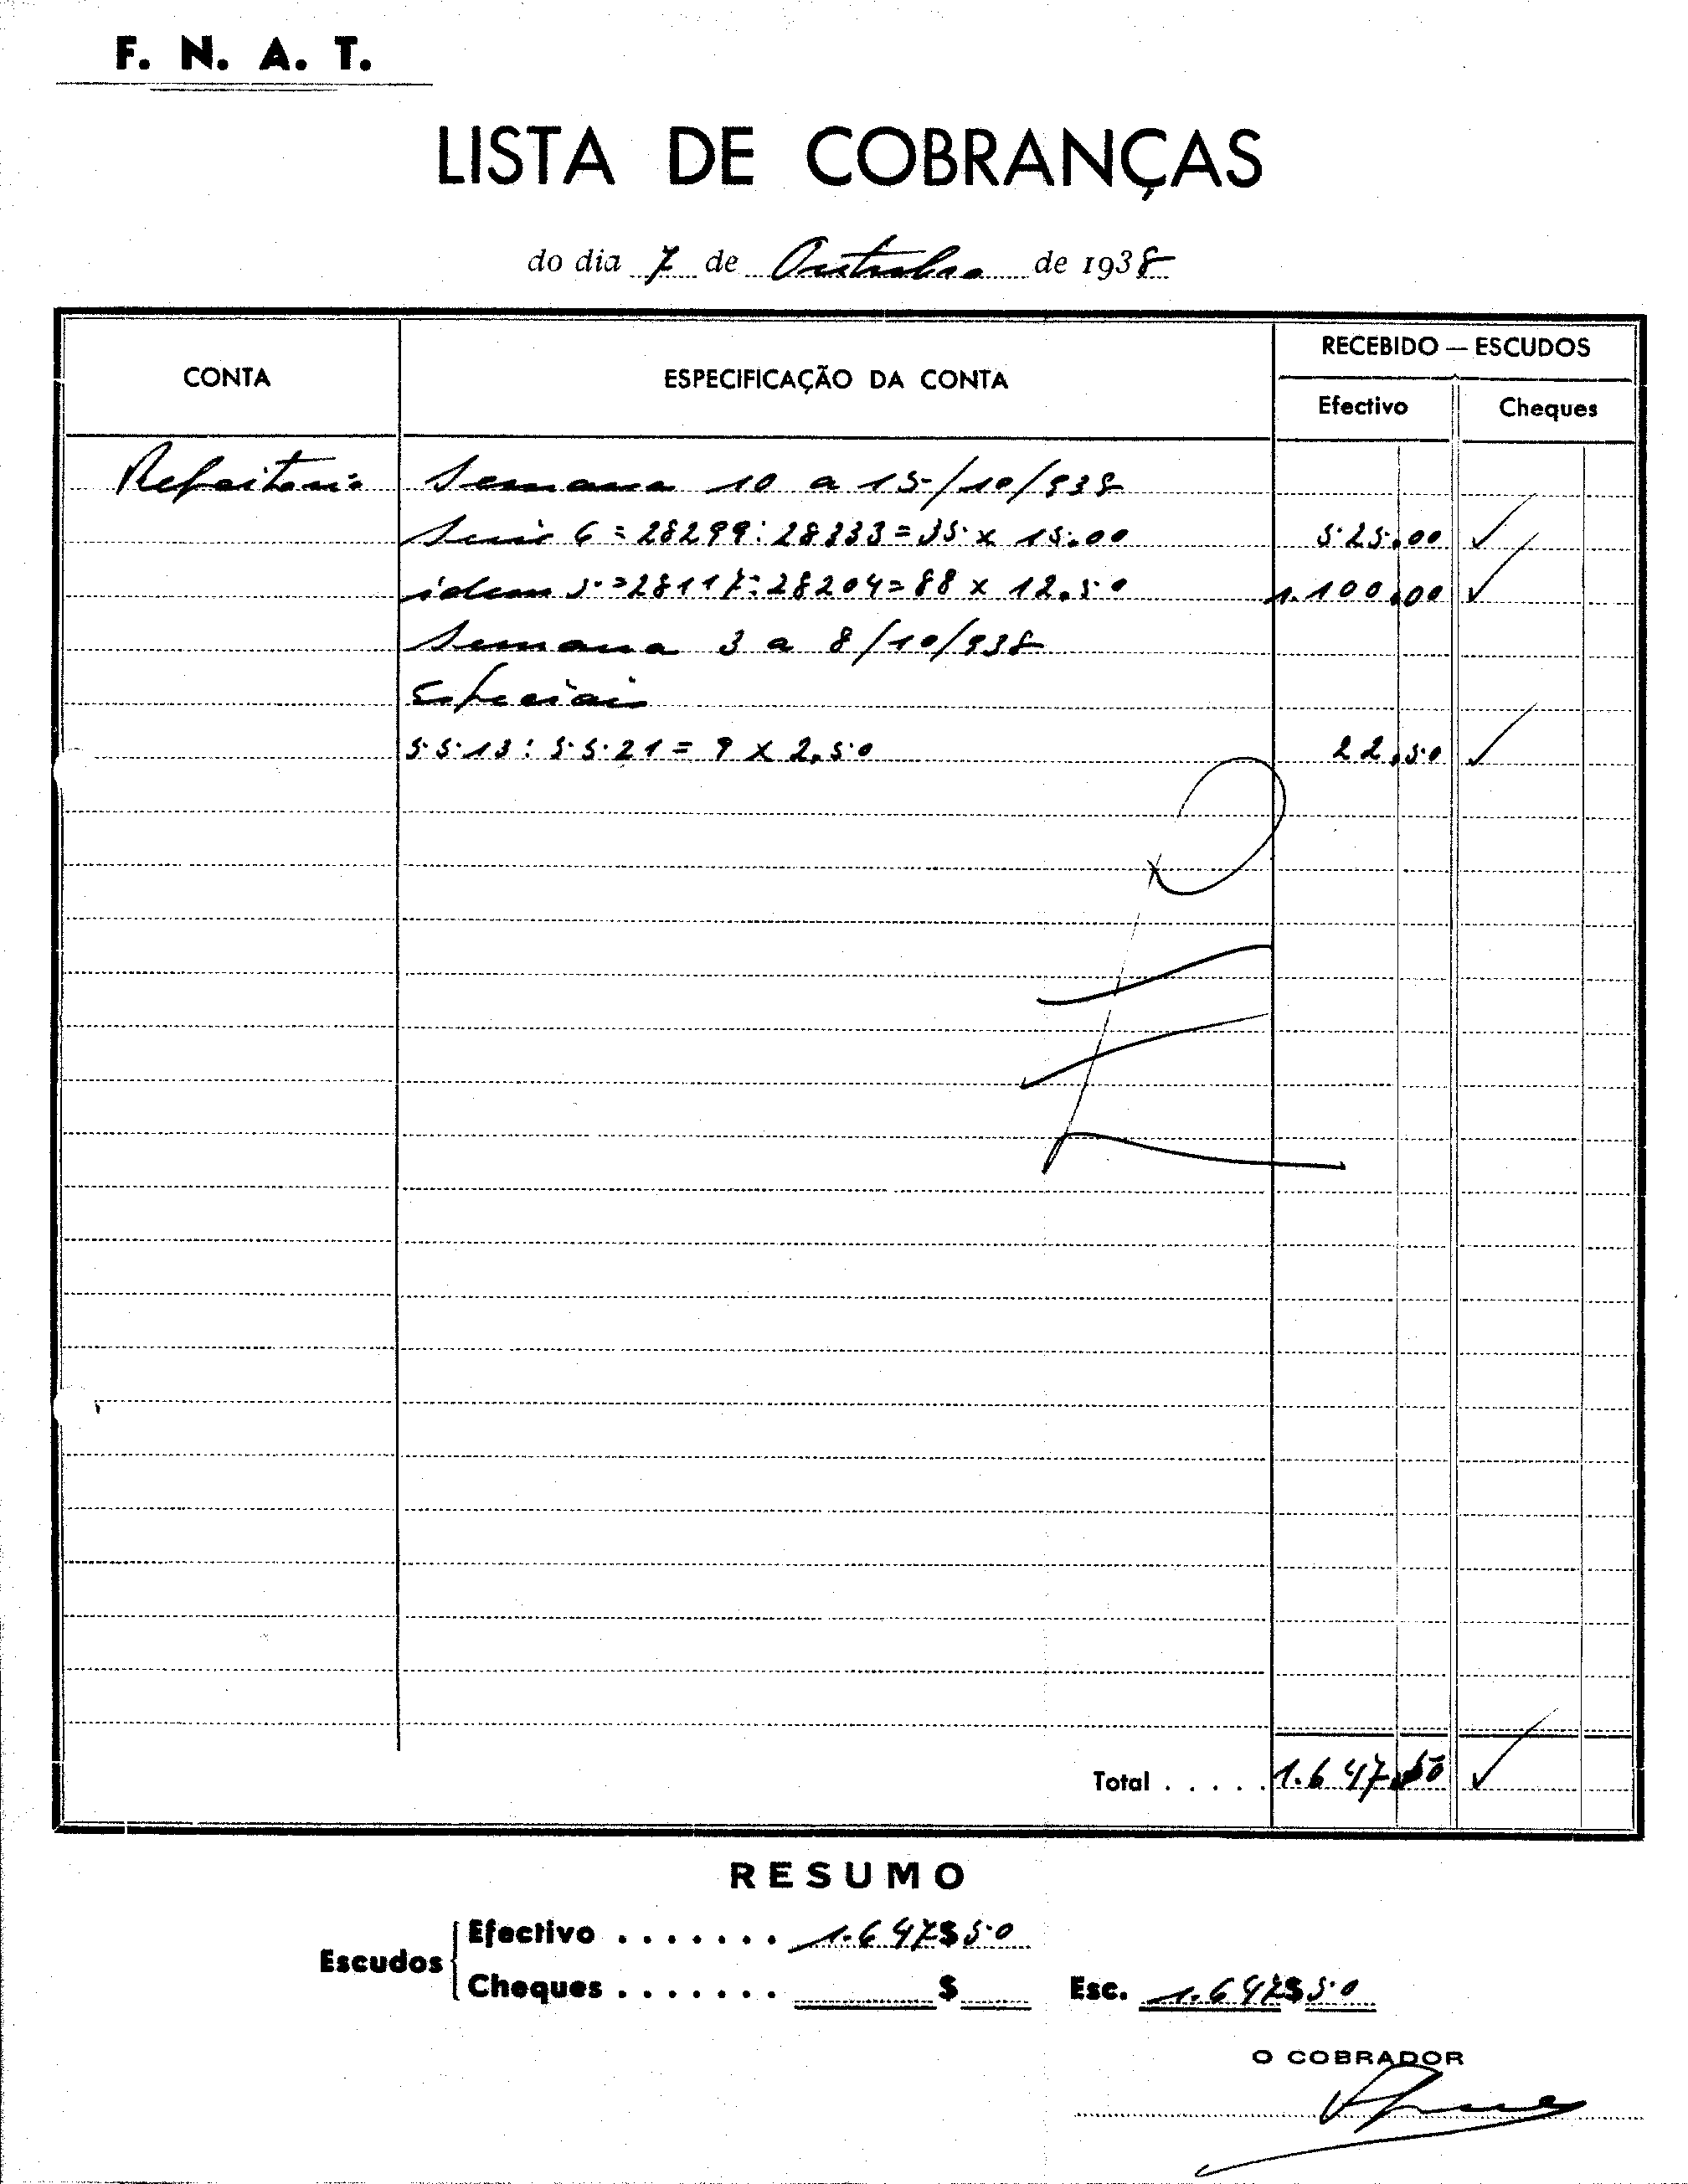 F. N. A. T.
LISTA DE COBRANÇAS
do dia 7 de Outubro de 1938
CONTA
ESPECIFICAÇÃO DA CONTA
RECEBIDO — ESCUDOS
Efectivo
Cheques
Refeitorio Semana 10 a 15/10/938
Serie 6 = 28299 : 28333 = 35 x 15.00 525.00
idem 5 = 28117 : 28204 = 88 x 12.50 1.100.00
Semana 3 a 8/10/938
Especiais
5513 : 5521 = 9 x 2,50 22.50
Total . . . . . 1.647.50
RESUMO
Escudos
Efectivo . . . . . . . 1.647$50
Cheques . . . . . . . $
Esc. 1.647$50
O COBRADOR